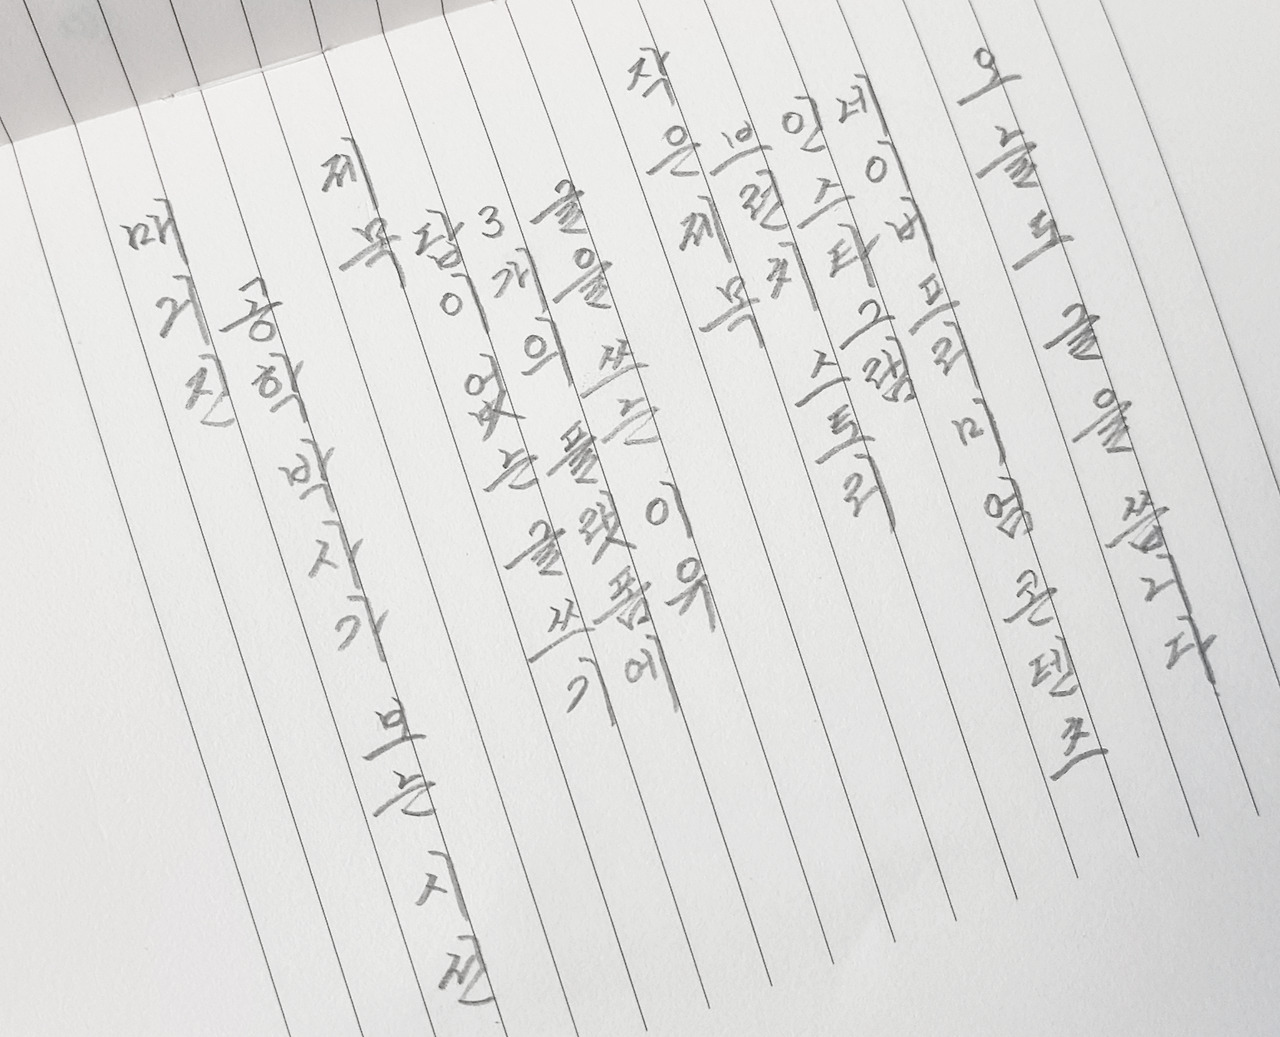 매거진
공학박사가 보는 시선
제목
답이 없는 글쓰기
3개의 플랫폼에
글을 쓰는 이유
작은 제목
브런치 스토리
인스타그램
네이버 프리미엄 콘텐츠
오늘도 글을 씁니다